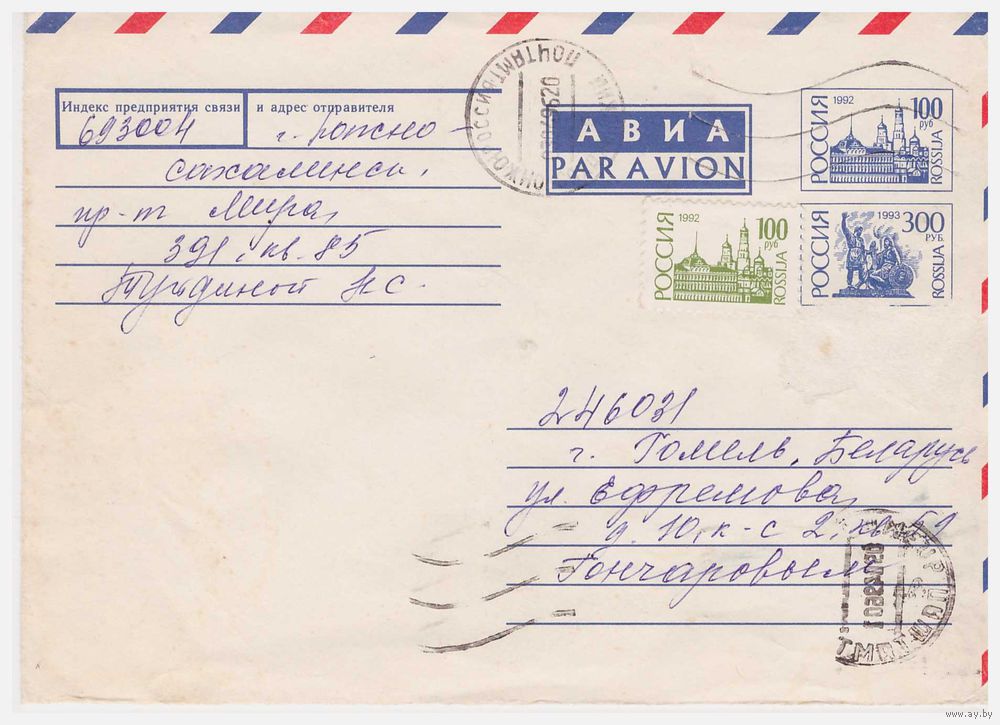 Индекс предприятия связи и адрес отправителя
693004 г. Южно-
сахалинск,
пр-т Мира,
391, кв. 85
Тундиной Н С.
ПОЧТАМТ
РОССИЯ
АВИА
PAR AVION
РОССИЯ 1992 100 руб ROSSIJA
РОССИЯ 1992 100 руб ROSSIJA
РОССИЯ 1993 300 РУБ. ROSSIJA
246031
г. Гомель, Беларусь
ул. Ефремова,
д. 10, к-с 2, кв 59
Гончаровым
www.ay.by